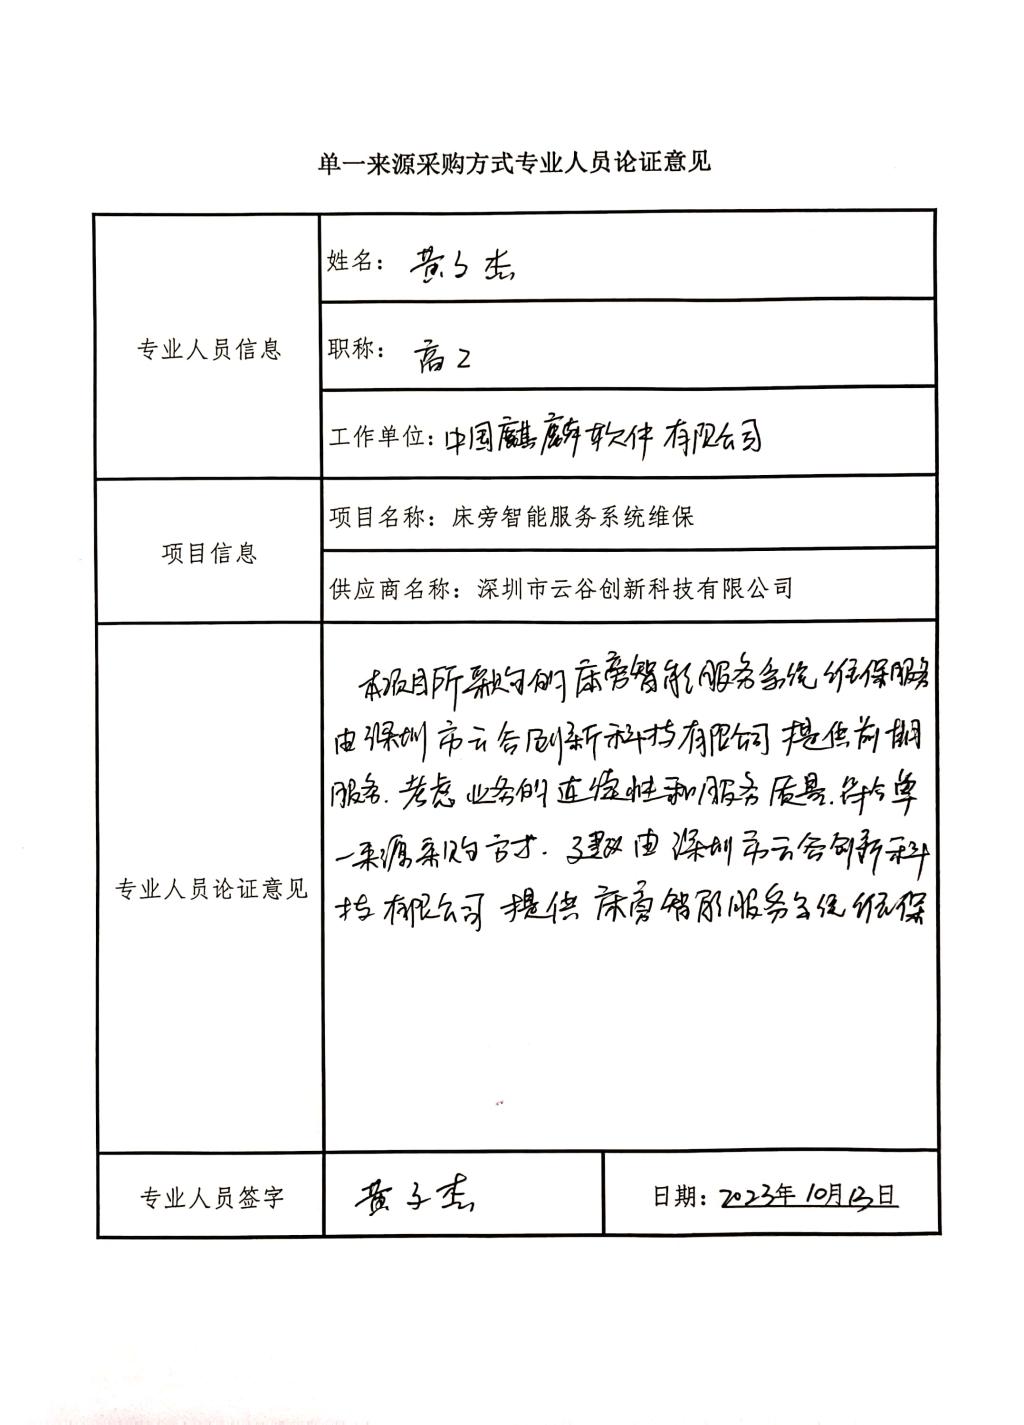 单一来源采购方式专业人员论证意见
专业人员信息
姓名：黄子杰
职称：高工
工作单位：中国麒麟软件有限公司
项目信息
项目名称：床旁智能服务系统维保
供应商名称：深圳市云谷创新科技有限公司
专业人员论证意见
本项目所采购的床旁智能服务系统维保服务
由深圳市云谷创新科技有限公司提供前期
服务.考虑业务的连续性和服务质量.符合单
一来源采购方式.建议由深圳市云谷创新科
技有限公司提供床旁智能服务系统维保
专业人员签字
黄子杰
日期：2023年10月13日